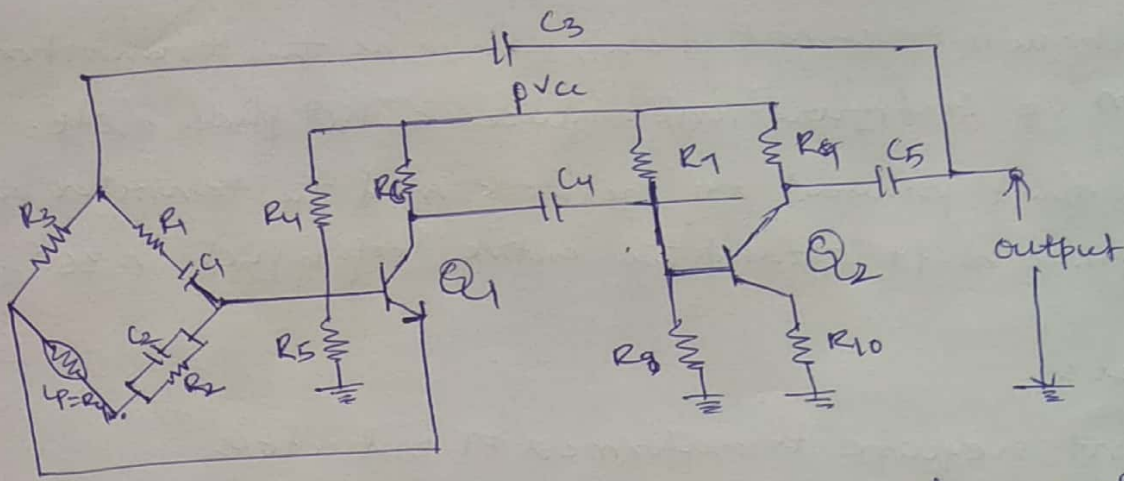 C3
pVcc
R3
R1
C1
R4
R6
C4
R7
R9
C5
Q1
Q2
output
C2
R2
R5
R8
R10